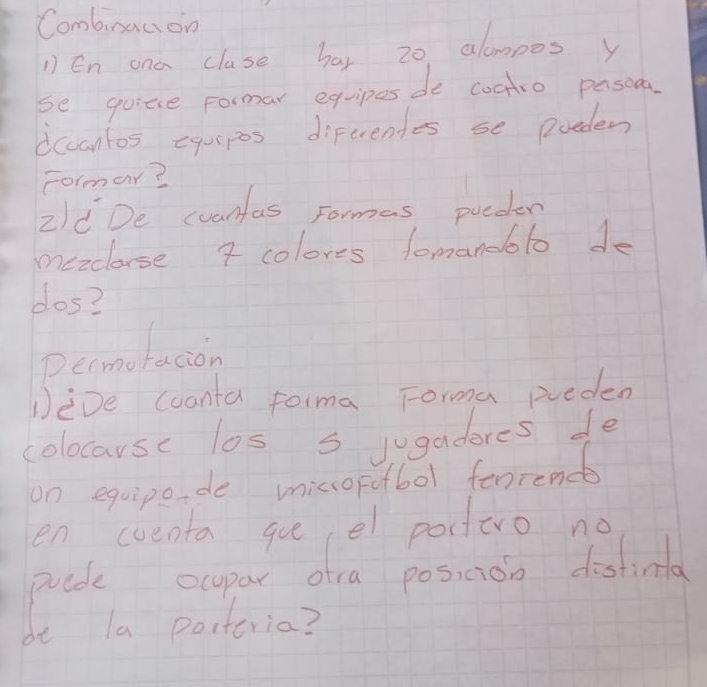 Combinacion
1) En una clase hay 20 alumnos y
se quiere Formar equipos de cuatro person-
¿cuantos equipos diferentes se pueden
Formar?
2) ¿De cuantas Formas pueden
mezclarse 7 colores tomandolo de
dos?
Permutación
1) ¿De cuanta Forma Forma pueden
colocarse los 5 jugadores de
un equipo de microfutbol teniendo
en cuenta que el portero no
puede ocupar otra posición distinta
de la porteria?